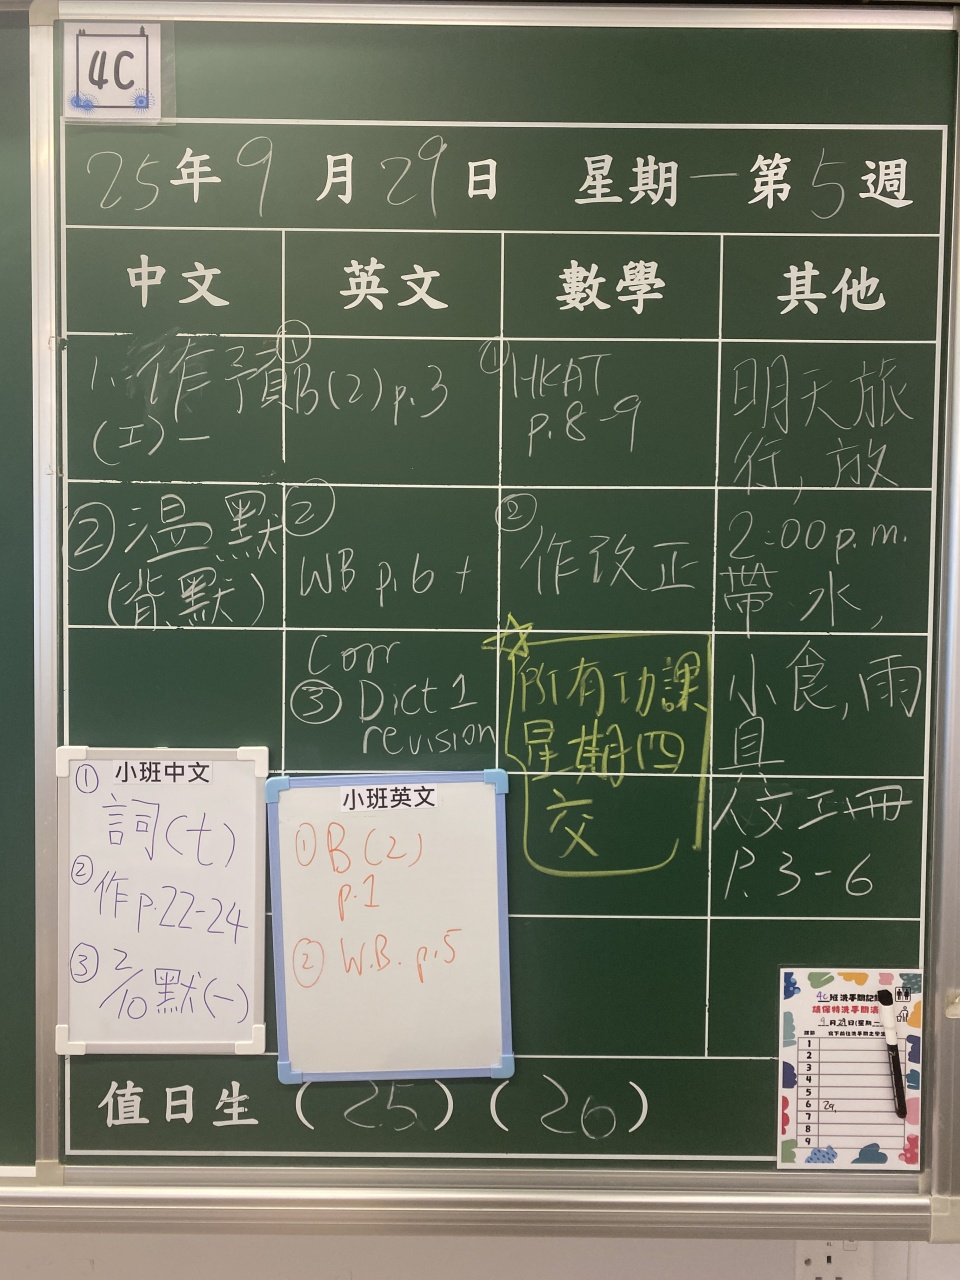 4C
25年9月29日 星期一第5週
中文 英文 數學 其他
1. 作預
(工)一
② 溫默
(背默)
① B(2) p.3
②
WB p.6 +
Corr
③ Dict 1
revision
① HKAT
p.8-9
② 作改正
所有功課
星期四
交
明天旅
行, 放
2:00 p.m.
帶水,
小食, 雨
具
人文工冊
P.3-6
小班中文
① 詞(七)
② 作p.22-24
③ 2/10 默(一)
小班英文
① B(2)
p.1
② W.B. p.5
值日生 (25) (26)
4C班洗手間記
請保持洗手間清
9月29日(星期一
1
2
3
4
5
6 29,
7
8
9